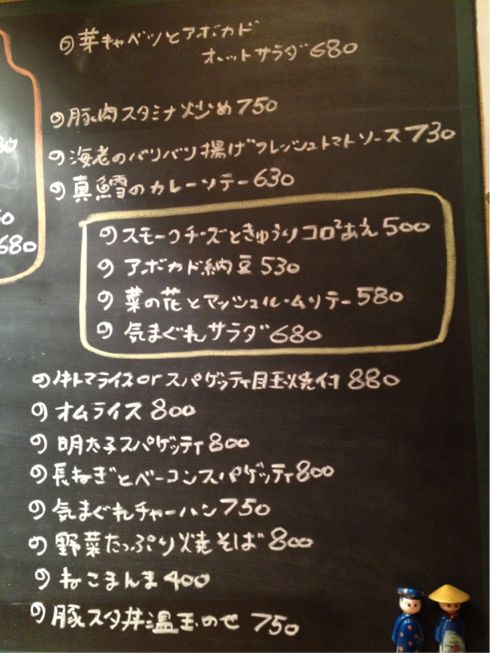 の 芽キャベツとアボカド
ホットサラダ 680
の 豚肉スタミナ炒め 750
の 海老のバリバリ揚げフレッシュトマトソース 730
の 真鱈のカレーソテー 630
の スモークチーズときゅうりコロ²あえ 500
の アボカド納豆 530
の 菜の花とマッシュルームソテー 580
の 気まぐれサラダ 680
の 牛トマライスorスパゲッティ目玉焼付 880
の オムライス 800
の 明太子スパゲッティ 800
の 長ねぎとベーコンスパゲッティ 800
の 気まぐれチャーハン 750
の 野菜たっぷり焼そば 800
の ねこまんま 400
の 豚スタ丼温玉のせ 750
680